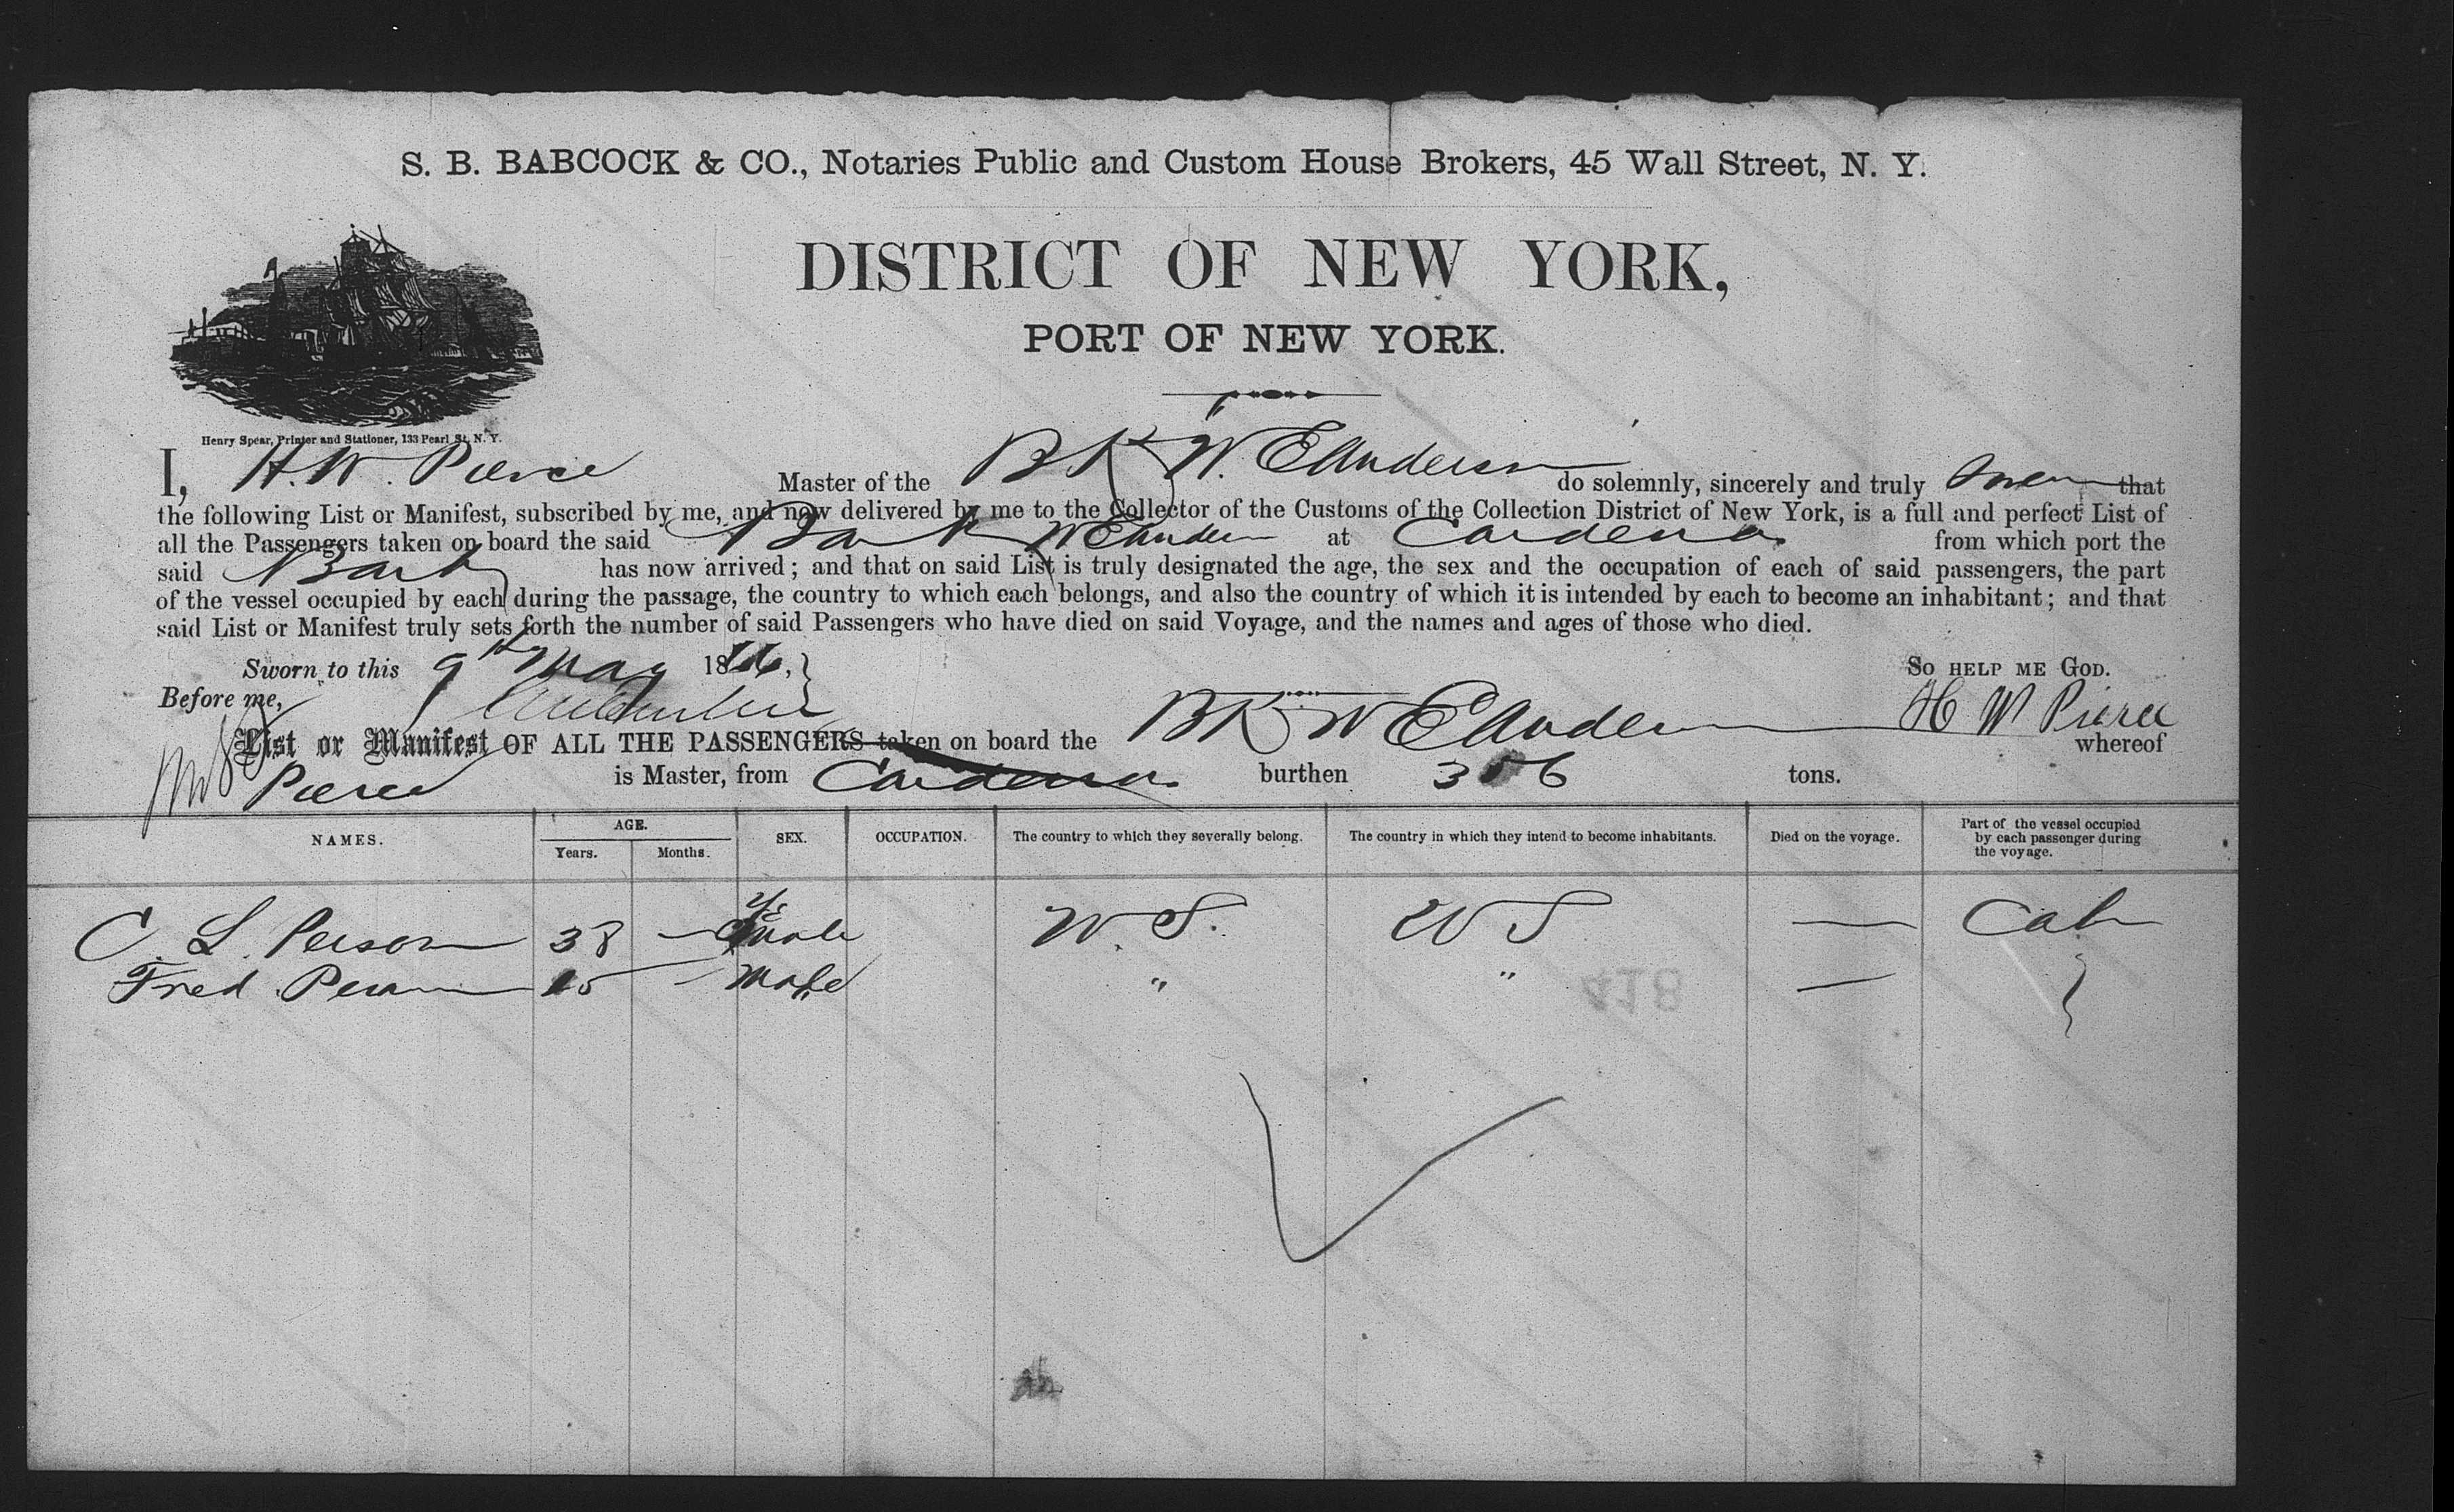 S. B. BABCOCK & CO., Notaries Public and Custom House Brokers, 45 Wall Street, N. Y.
DISTRICT OF NEW YORK,
PORT OF NEW YORK.
Henry Spear, Printer and Stationer, 133 Pearl St. N. Y.
I, H. W. Pierce Master of the BK W. E Anderson do solemnly, sincerely and truly swear that
the following List or Manifest, subscribed by me, and now delivered by me to the Collector of the Customs of the Collection District of New York, is a full and perfect List of
all the Passengers taken on board the said Bark W E Anderson at Cardenas from which port the
said Bark has now arrived; and that on said List is truly designated the age, the sex and the occupation of each of said passengers, the part
of the vessel occupied by each during the passage, the country to which each belongs, and also the country of which it is intended by each to become an inhabitant; and that
said List or Manifest truly sets forth the number of said Passengers who have died on said Voyage, and the names and ages of those who died.
Sworn to this 9th May 18 SO HELP ME GOD.
Before me, H W Pierce
List or Manifest OF ALL THE PASSENGERS taken on board the BK W E Anderson whereof
Pierce is Master, from Cardenas burthen 3 6 tons.
NAMES. AGE. Years. Months. SEX. OCCUPATION. The country to which they severally belong. The country in which they intend to become inhabitants. Died on the voyage. Part of the vessel occupied by each passenger during the voyage.
C. L. Person 38 — male U. S. U S — Cab
Fred Person 15 — male " " —
418